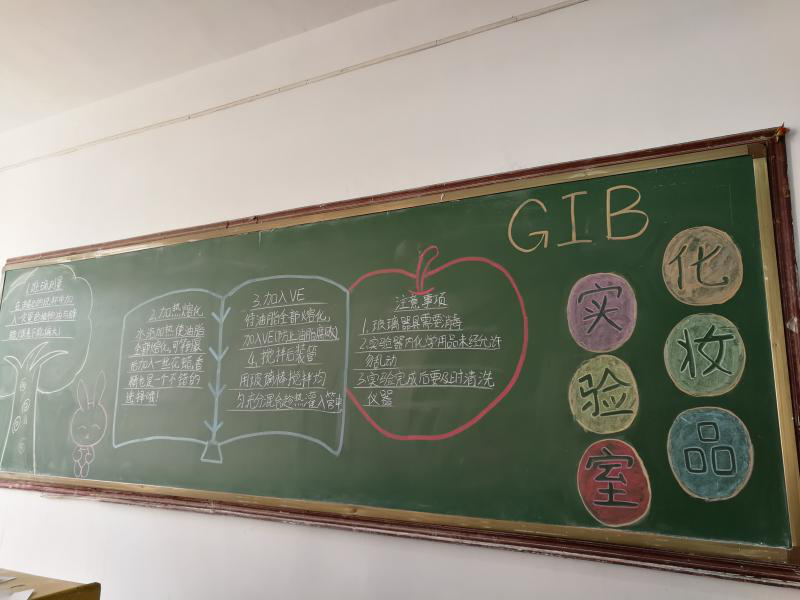 GIB
化妆品
实验室
1.准确测量
2.加热熔化
水浴加热使油脂
全部熔化,可等到最
后加入一些花瓣,香
精也是一个不错的
选择哦!
3.加入VE
待油脂全部熔化,
加入VE(防止油脂腐败)
4.搅拌后装管
用玻璃棒搅拌均
匀充分混合趁热灌入管中
注意事项
1.玻璃器具需要消毒
2.实验器内化学用品未经允许
勿乱动
3.实验完成后要及时清洗
仪器